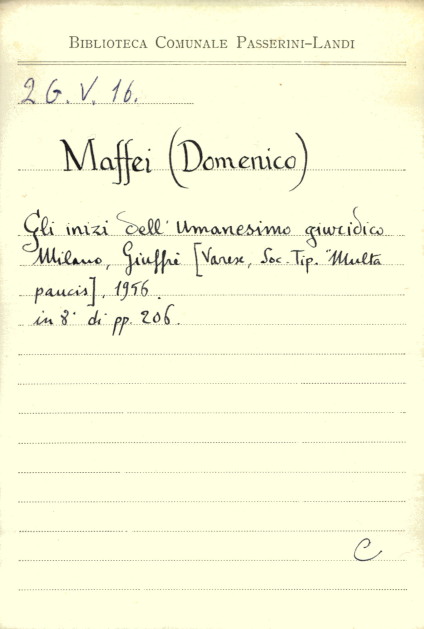 BIBLIOTECA COMUNALE PASSERINI-LANDI
2 G. V. 16.
Maffei (Domenico)
Gli inizi dell'Umanesimo giuridico
Milano, Giuffrè [Varese, Soc. Tip. "Multa
paucis], 1956.
in 8° di pp. 206.
C